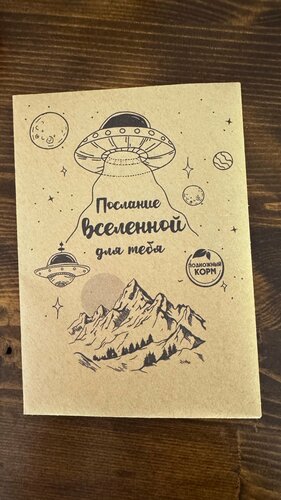 Послание
вселенной
для тебя
ПОДНОЖНЫЙ
КОРМ